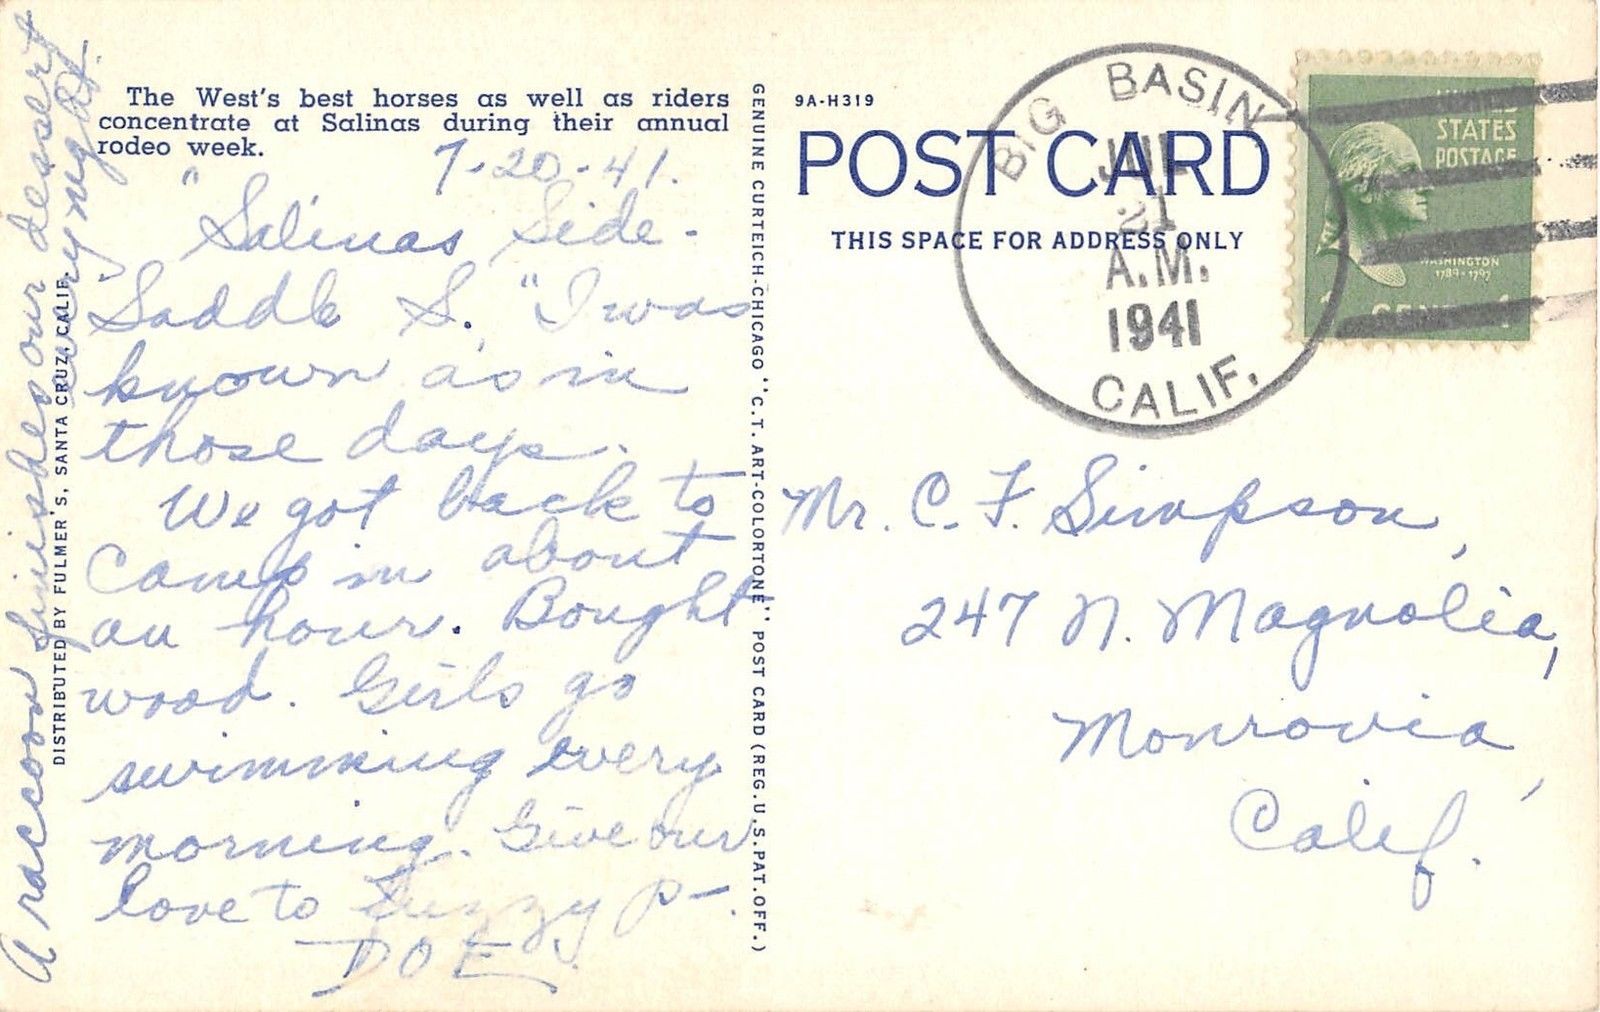 The West's best horses as well as riders
concentrate at Salinas during their annual
rodeo week.
7-20-41.
"Salinas Side-
Saddle S." I was
known as in
those days.
We got back to
Camp in about
an hour. Bought
wood. Girls go
swimming every
morning. Give our
love to Fuzzy P-.
DOE.
A raccoon finishes our dessert
every night.
DISTRIBUTED BY FULMER'S, SANTA CRUZ, CALIF.
GENUINE CURTEICH-CHICAGO "C.T. ART-COLORTONE" POST CARD (REG. U.S. PAT. OFF.)
9A-H319
POST CARD
THIS SPACE FOR ADDRESS ONLY
BIG BASIN
JUL
21
A.M.
1941
CALIF.
STATES
POSTAGE
WASHINGTON
1789-1797
1 CENT 1
Mr. C. F. Simpson,
247 N. Magnolia,
Monrovia,
Calif.